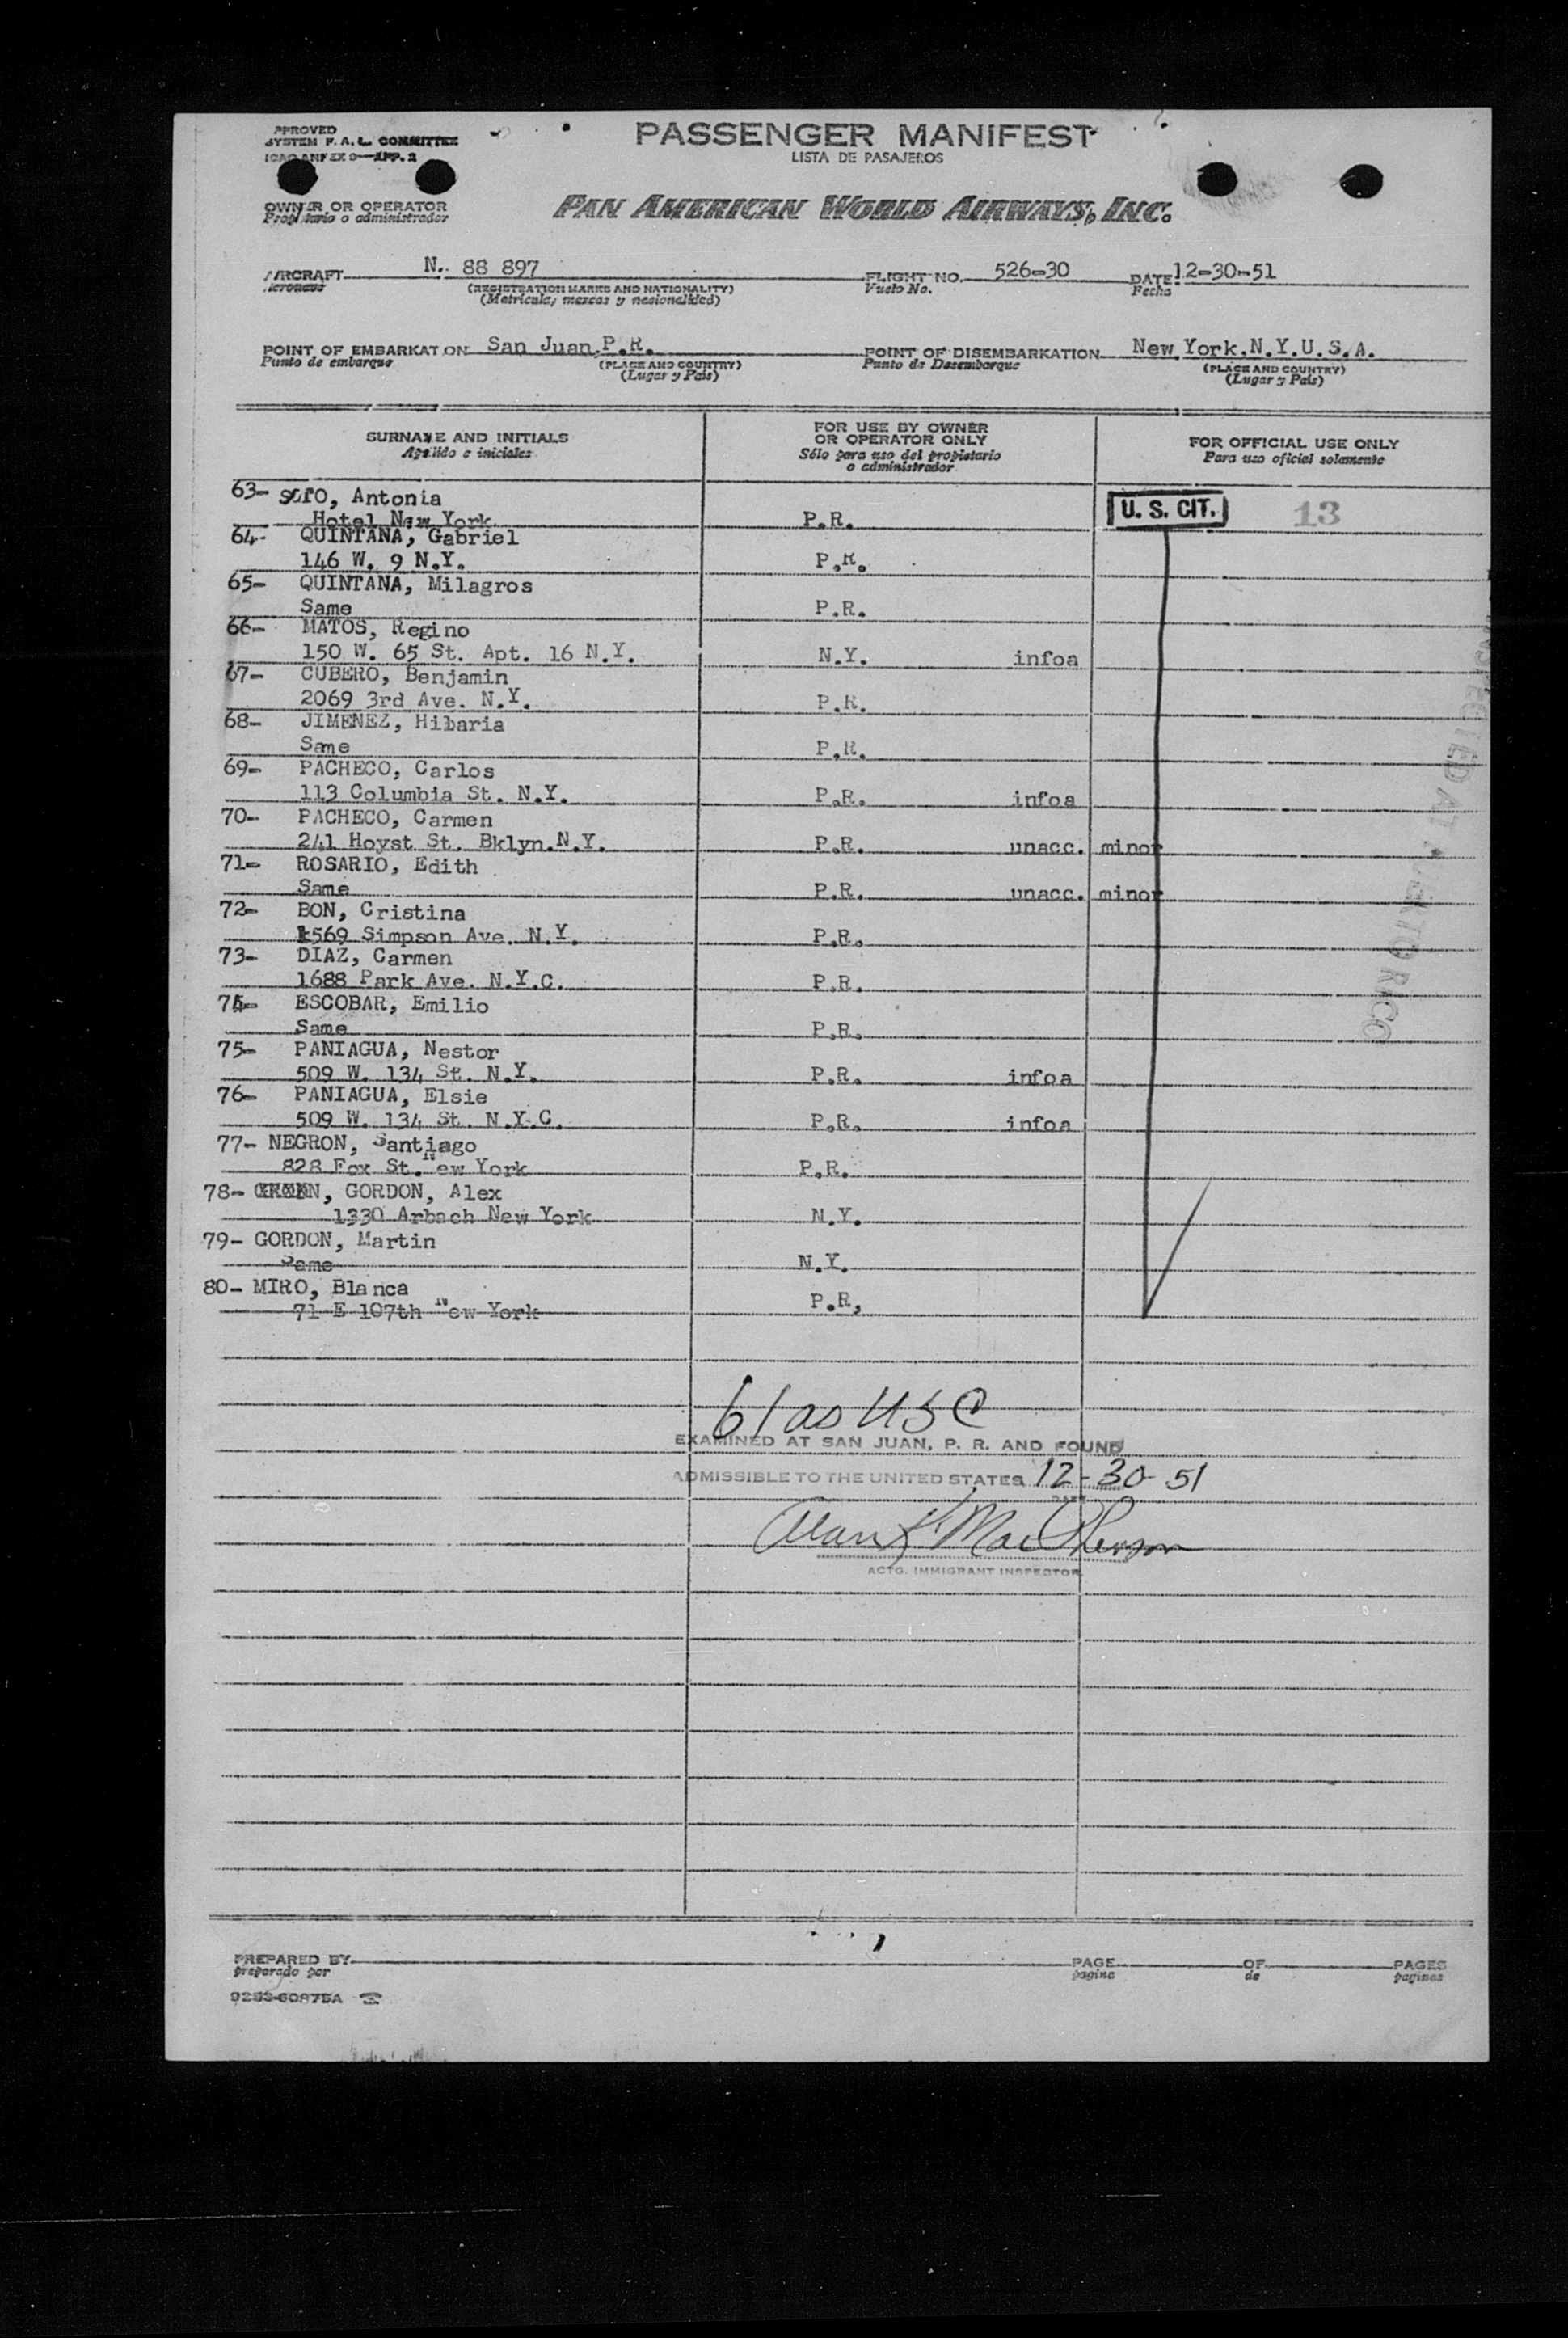 APPROVED
SYSTEM F. A. L. COMMITTEE
ICAO ANFEX 9—APP. 2
PASSENGER MANIFEST
LISTA DE PASAJEROS
OWNER OR OPERATOR
Propietario o administrador
PAN AMERICAN WORLD AIRWAYS, INC.
AIRCRAFT N. 88 897 FLIGHT NO. 526-30 DATE 12-30-51
Aeronave (REGISTRATION MARKS AND NATIONALITY) Vuelo No. Fecha
(Matricula, marcas y nacionalidad)
POINT OF EMBARKATION San Juan,P.R. POINT OF DISEMBARKATION New York,N.Y.U.S.A.
Punto de embarque (PLACE AND COUNTRY) Punto de Desembarque (PLACE AND COUNTRY)
(Lugar y País) (Lugar y País)
SURNAME AND INITIALS FOR USE BY OWNER OR OPERATOR ONLY FOR OFFICIAL USE ONLY
Apellido e iniciales Sólo para uso del propietario o administrador Para uso oficial solamente
63- SOTO, Antonia
Hotel New York P.R. U. S. CIT. 13
64- QUINTANA, Gabriel
146 W. 9 N.Y. P.R.
65- QUINTANA, Milagros
Same P.R.
66- MATOS, Regino
150 W. 65 St. Apt. 16 N.Y. N.Y. infoa
67- CUBERO, Benjamin
2069 3rd Ave. N.Y. P.R.
68- JIMENEZ, Hilaria
Same P.R.
69- PACHECO, Carlos
113 Columbia St. N.Y. P.R. infoa
70- PACHECO, Carmen
241 Hoyst St. Bklyn.N.Y. P.R. unacc. minor
71- ROSARIO, Edith
Same P.R. unacc. minor
72- BON, Cristina
1569 Simpson Ave. N.Y. P.R.
73- DIAZ, Carmen
1688 Park Ave. N.Y.C. P.R.
74- ESCOBAR, Emilio
Same P.R.
75- PANIAGUA, Nestor
509 W. 134 St. N.Y. P.R. infoa
76- PANIAGUA, Elsie
509 W. 134 St. N.Y.C. P.R. infoa
77- NEGRON, Santiago
828 Fox St. New York P.R.
78- GORDON, Alex
1330 Arbach New York N.Y.
79- GORDON, Martin
Same N.Y.
80- MIRO, Blanca
71 E 107th New York P.R,
INSPECTED AT PUERTO RICO
61 as USC
EXAMINED AT SAN JUAN, P. R. AND FOUND
ADMISSIBLE TO THE UNITED STATES 12-30-51
DATE
Alan K MacPherson
ACTG. IMMIGRANT INSPECTOR
PREPARED BY PAGE OF PAGES
preparado por pagina de paginas
9253-60875A